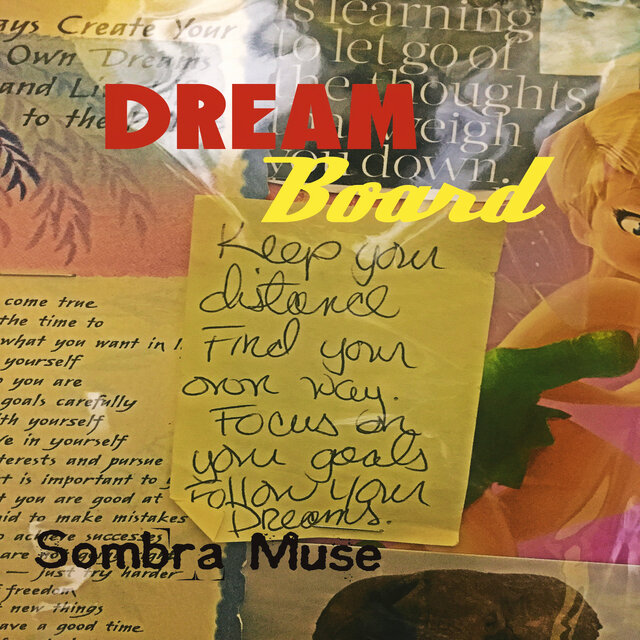 ays Create Your
Own Dreams
and Li
to the
is learning
to let go of
the thoughts
that weigh
you down.
DREAM
Board
Keep your
distance
Find your
own way.
Focus on
your goals
Follow your
Dreams.
come true
the time to
what you want in l
yourself
you are
goals carefully
th yourself
ve in yourself
terests and pursue
t is important to
t you are good at
aid to make mistakes
o achieve successes
are no
— just try harder
freedom
new things
ave a good time
Sombra Muse